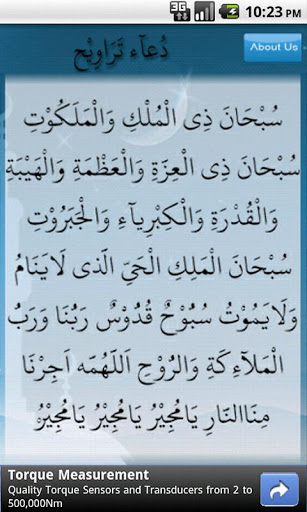 3G 10:23 PM
دُعآء تَرَاوِيْح
About Us
سُبْحَانَ ذِى الْمُلْكِ وَالْمَلَكُوْتِ
سُبْحَانَ ذِى الْعِزَةِ وَالْعَظْمَةِ وَالْهَيْبَةِ
وَالْقُدْرَةِ وَالْكِبْرِيآءِ وَالْجَبَرُوْتِ
سُبْحَانَ الْمَلِكِ الْحَيِّ الَّذى لَايَنَامُ
وَلَايَمُوْتُ سُبُوْحٌ قُدُوْسٌ رَبُنَا وَرَبُ
الْمَلآءِكَةِ وَالرُوْحِ اَللهُمَه اَجِرْنَا
مِنَاالنَارِ يَامُجِيْرُ يَامُجِيْرُ يَامُجِيْرُ
Torque Measurement
Quality Torque Sensors and Transducers from 2 to
500,000Nm